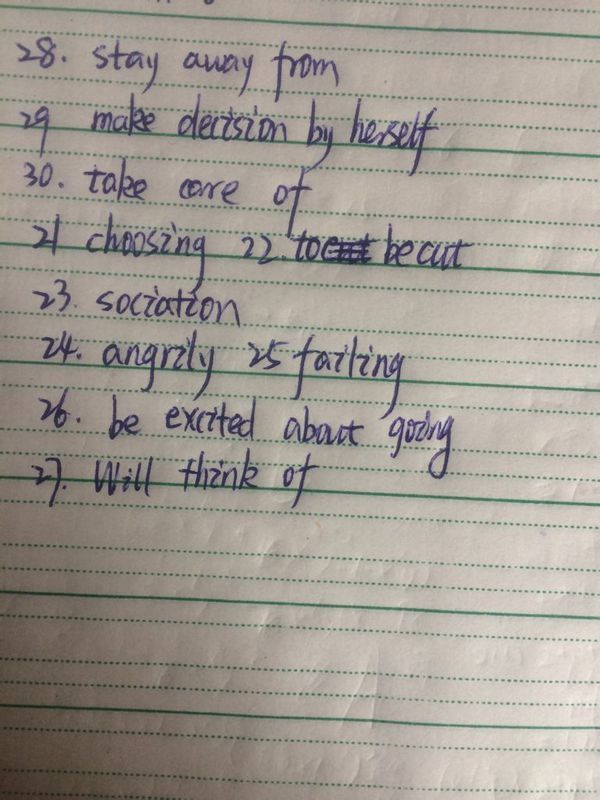 28. stay away from
29 make decision by herself
30. take care of
21 choosing 22. to be cut
23. sociation
24. angrily 25 failing
26. be excited about going
27. Will think of